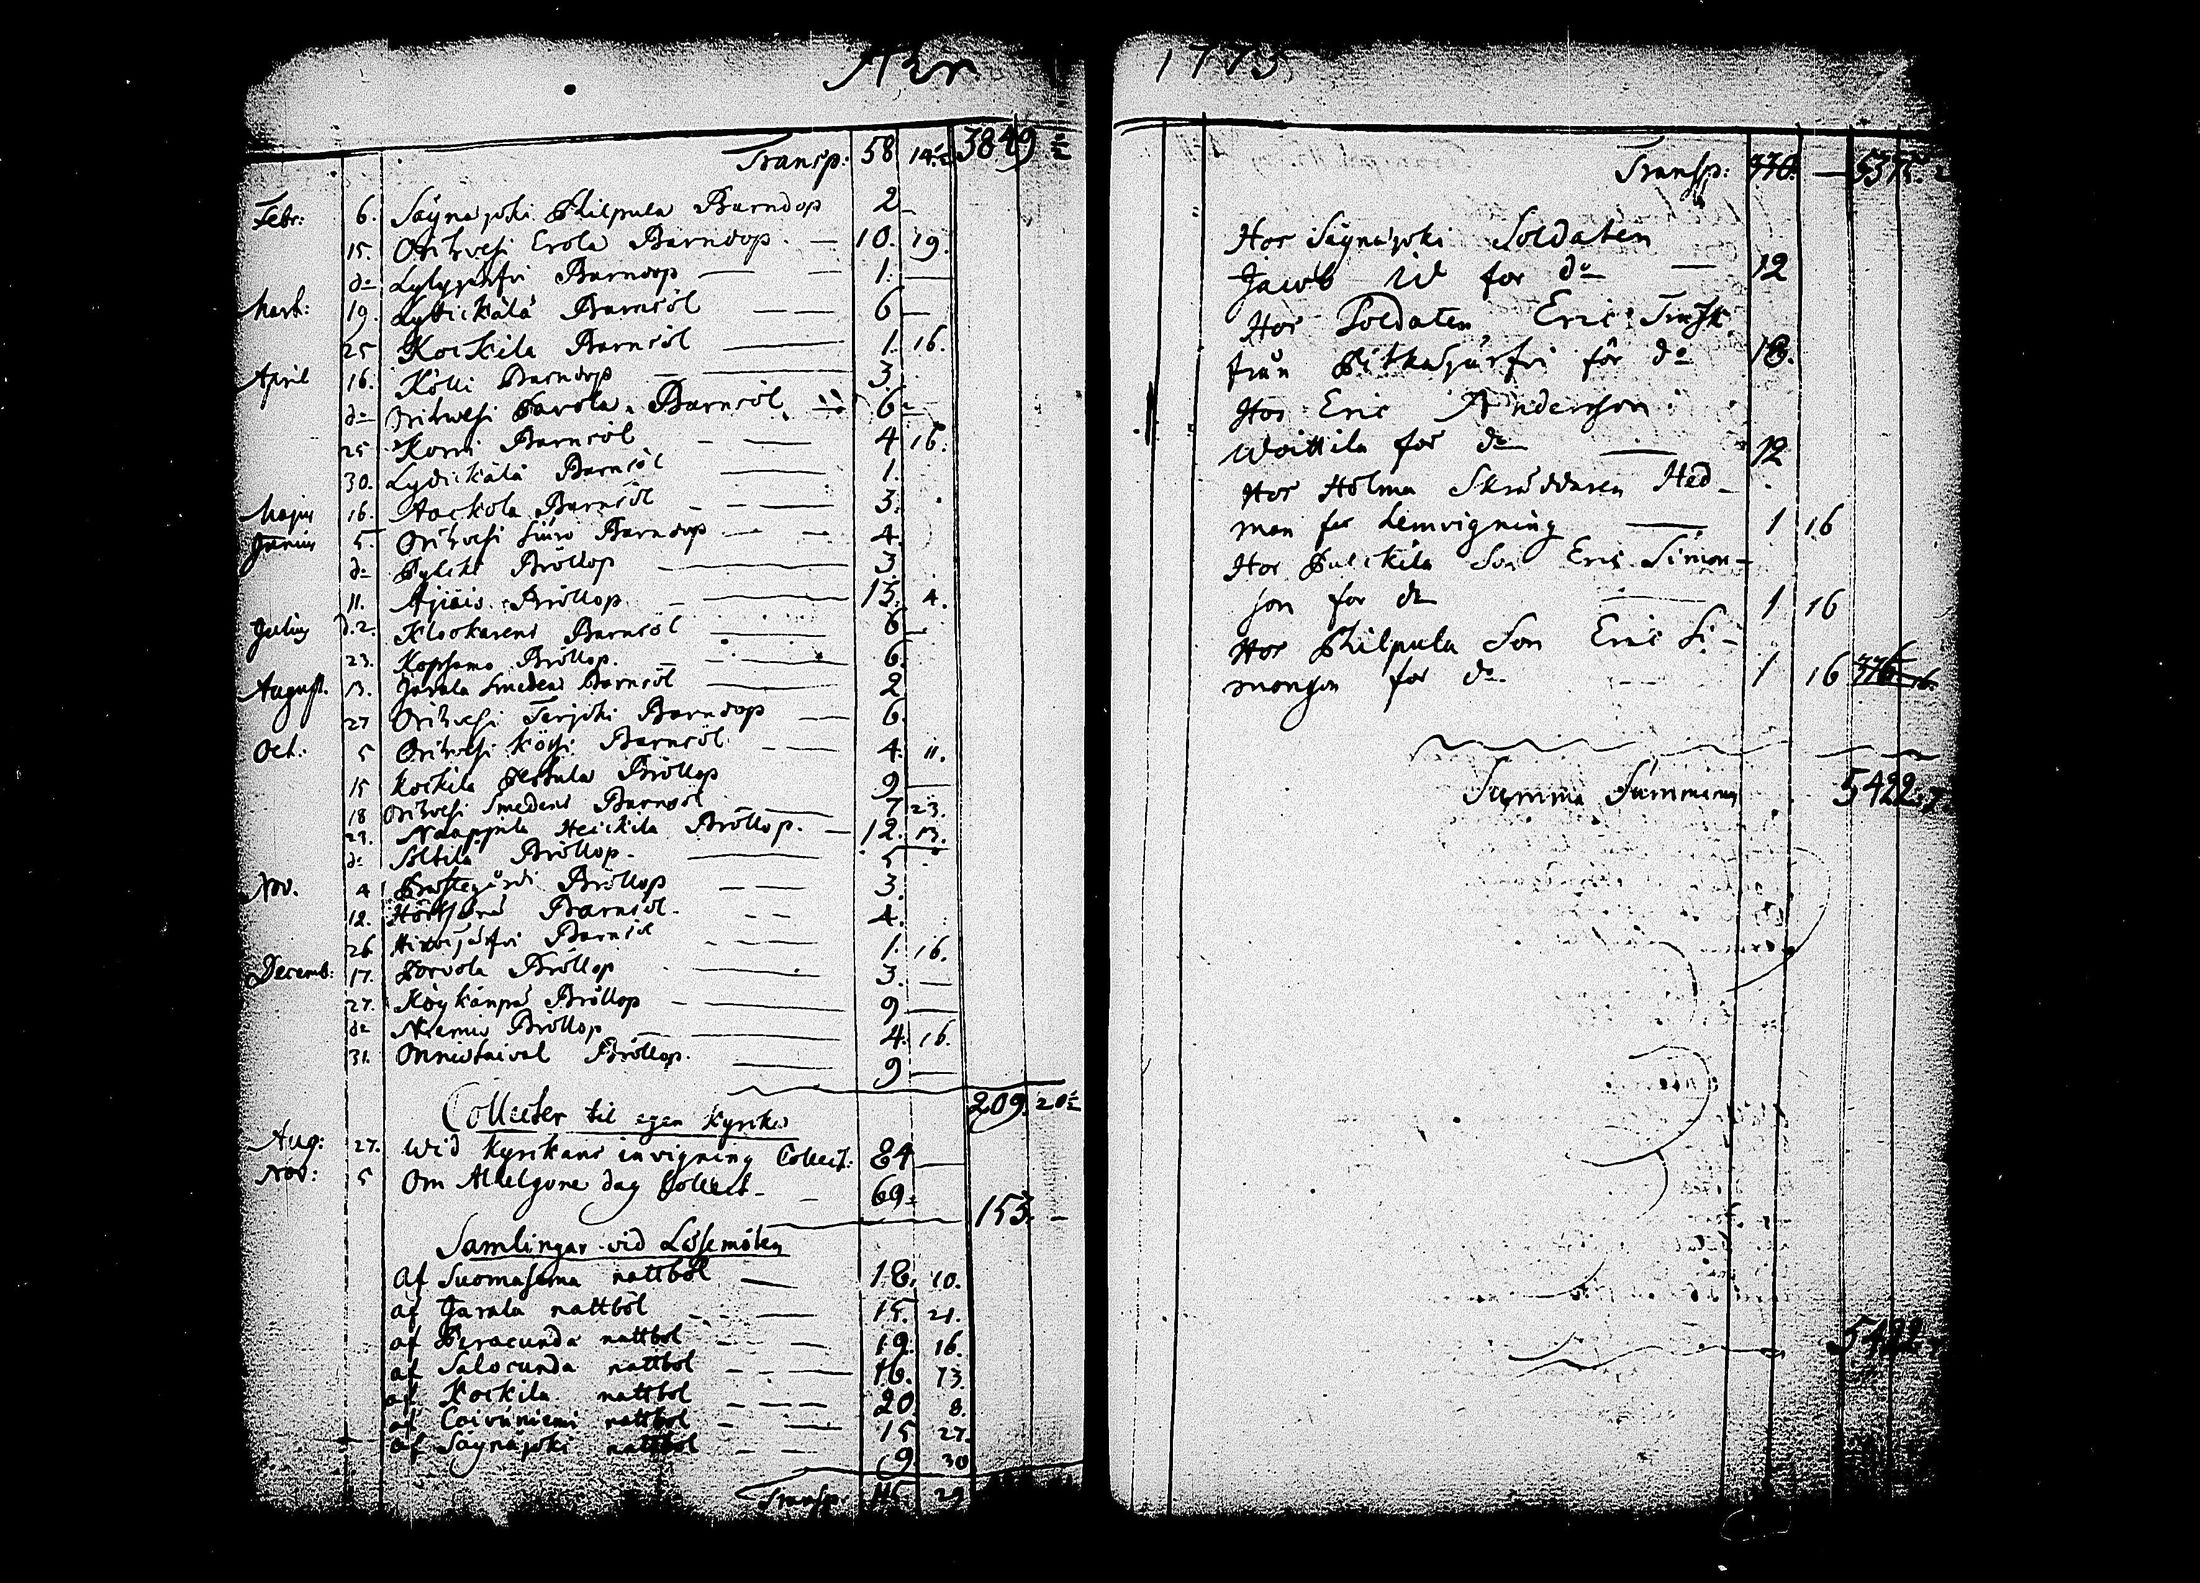 Åhr
Transp: 58 14 3849
Febr: 6. Säynäjoki Philpula Barndop 2 —
15. Orihvesi Erola Barndop. — 10. 19.
do Lylyjärfvi Barndop — — 1. —
Mart: 19. Lydickälä Barnsöl — — 6 —
25 Kockila Barnsöl — 1. 16.
April 16. Kölli Barndop — — 3
do Orihvesi Pavola Barnsöl 6 —
25 Korri Barnsöl — — 4 16.
30. Lydickälä Barnsöl — 1.
Majus 16. Aackola Barnsöl — — 3.
Junius 5. Orihvesi Siuro Barndop — — 4.
do Pylckö Bröllop — 3
11. Äijäis Bröllop — 15. 4.
Julius d. 2. Klockarens Barnsöl — 6 —
23. Kopsamo Bröllop. — — 6.
August. 13. Javala Smedens Barnsöl — 2
27 Orihvesi Terjoki Barndop — 6.
Oct: 5 Orihvesi Kössi Barnsöl — — 4. 11.
15 Kockila Bröllop 9 —
18 Orihvesi Smedens Barnsöl — 7 23.
29. Naappila Heickilä Bröllop. — 12. 13.
do Soltila Bröllop. — 5
Nov. 4 Prästegårds Bröllop — — 3.
12. Barnsöl. — — 4.
26 Hirvijärfvi Barnsöl — — 1. 16.
Decemb: 17. Porvola Bröllop — 3. —
27. Köykänpä Bröllop — — 9 —
do Niemis Bröllop — 4. 16.
31. Onnistaival Bröllop. — 9 —
209. 20
Collecter til egen Kyrka
Aug: 27. Wid Kyrkans invigning Collect: 84 —
Nov: 5 Om Alhelgona dag Collect — — 69
153. —
Samlingar vid Läsemöten
Af Suomasema nattböl — 18. 10.
af Javala nattböl — — 15. 21.
af Peracunda nattböl — — 19. 16.
af Salocunda nattböl — — 16. 13.
af Kockila nattböl — — 20 8.
af Coivuniemi nattböl — — 15 27.
af Säynäjoki nattböl — — 9. 30
Transp: 115. 29
1775
Transp: 770. — 5375.
Hos Säynäjoki Soldaten
Jacob Id for do — 12
Hos Soldaten Eric Frisk
från Pitkäjärfvi för do 18.
Hos Eric Andersson
Woittila for do — 12
Hos Holma Skräddaren Hed-
man for Lemvigning — 1 16
Hos Pulckila Son Eric Simon-
son for do — 1 16
Hos Philpula Son Eric Si-
monson for do 1 16 46 16.
Summa Summarum 5422. 7
5422.